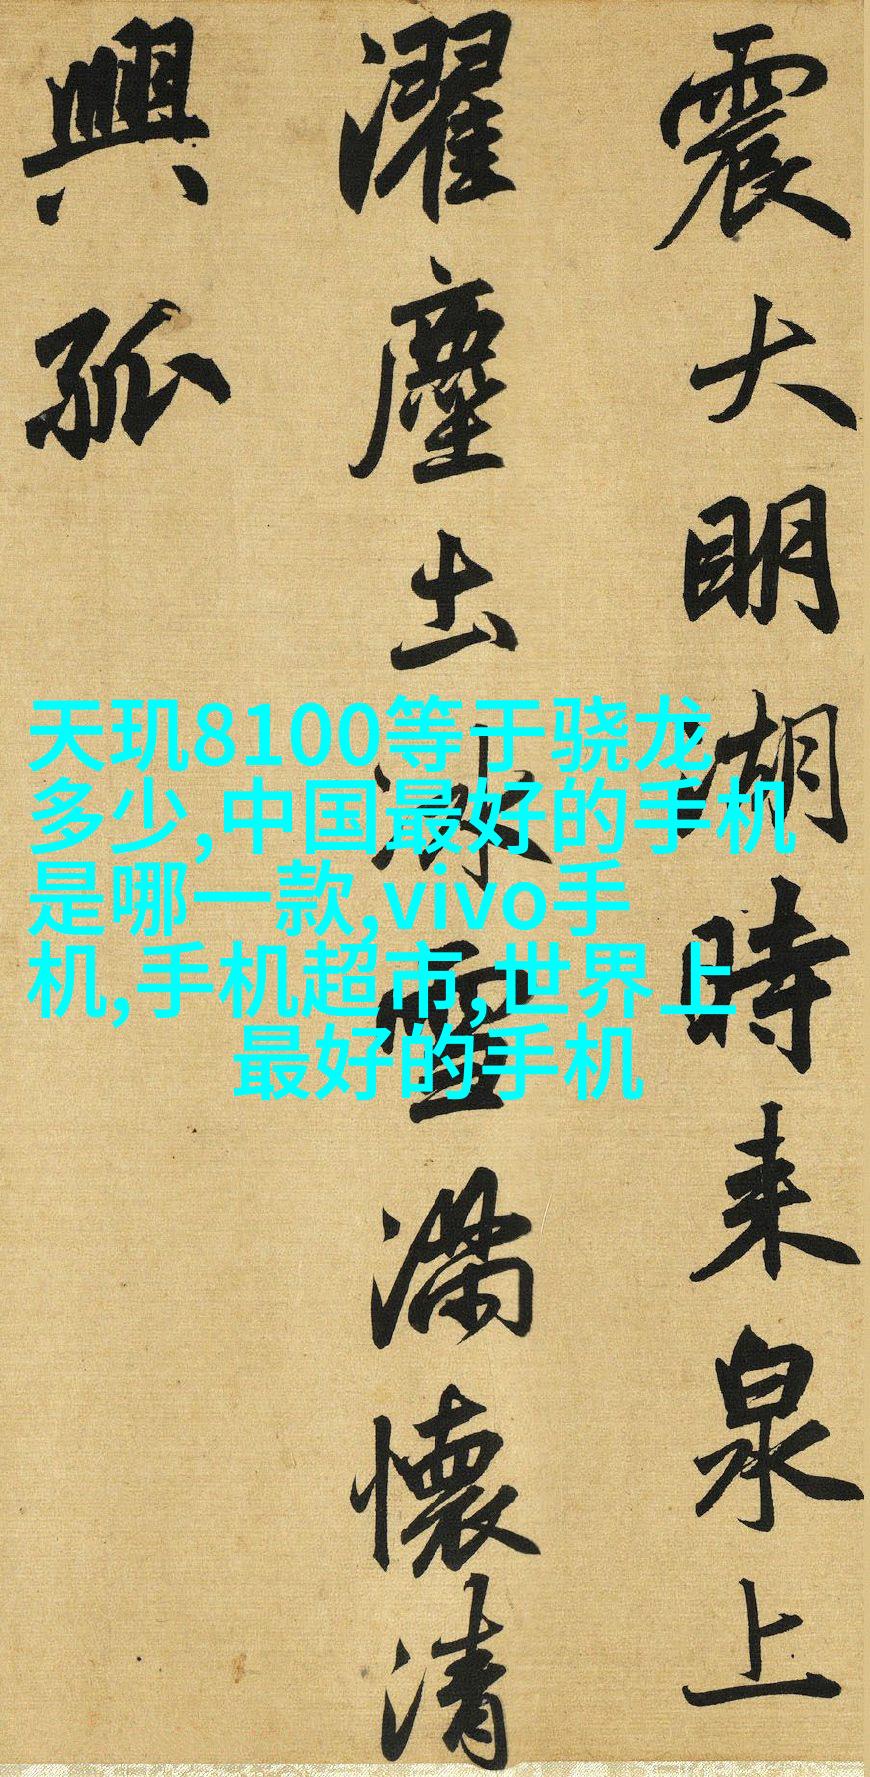 震大明湖時来泉上
濯塵出冰雪滿懷清
興孤
天玑8100等于骁龙
多少,中国最好的手机
是哪一款,vivo手
机,手机超市,世界上
最好的手机